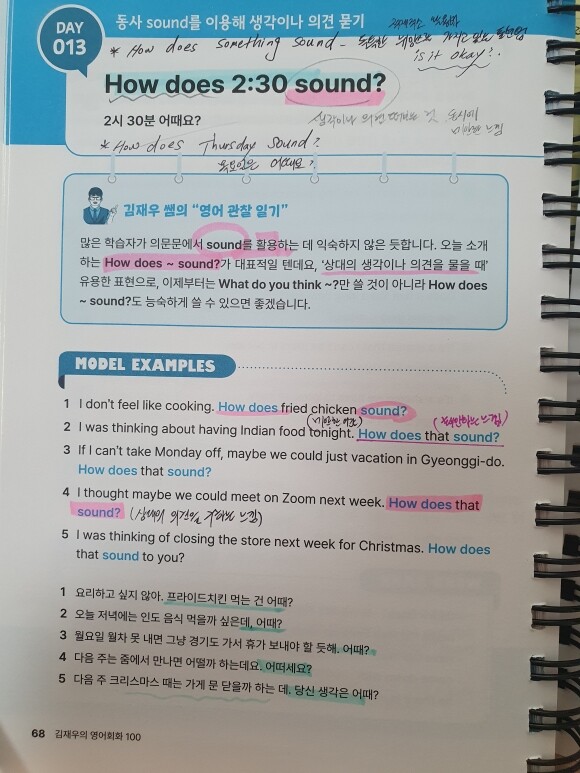 DAY
013
동사 sound를 이용해 생각이나 의견 묻기
* How does something sound -
is it okay?
How does 2:30 sound?
2시 30분 어때요?
생각이나 의견
* How does Thursday sound?
목요일은 어때요?
김재우 쌤의 “영어 관찰 일기”
많은 학습자가 의문문에서 sound를 활용하는 데 익숙하지 않은 듯합니다. 오늘 소개
하는 How does ~ sound?가 대표적일 텐데요, ‘상대의 생각이나 의견을 물을 때’
유용한 표현으로, 이제부터는 What do you think ~?만 쓸 것이 아니라 How does
~ sound?도 능숙하게 쓸 수 있으면 좋겠습니다.
MODEL EXAMPLES
1 I don't feel like cooking. How does fried chicken sound?
2 I was thinking about having Indian food tonight. How does that sound?
3 If I can't take Monday off, maybe we could just vacation in Gyeonggi-do.
How does that sound?
4 I thought maybe we could meet on Zoom next week. How does that
sound?
5 I was thinking of closing the store next week for Christmas. How does
that sound to you?
1 요리하고 싶지 않아. 프라이드치킨 먹는 건 어때?
2 오늘 저녁에는 인도 음식 먹을까 싶은데, 어때?
3 월요일 월차 못 내면 그냥 경기도 가서 휴가 보내야 할 듯해. 어때?
4 다음 주는 줌에서 만나면 어떨까 하는데요. 어떠세요?
5 다음 주 크리스마스 때는 가게 문 닫을까 하는 데, 당신 생각은 어때?
68 김재우의 영어회화 100